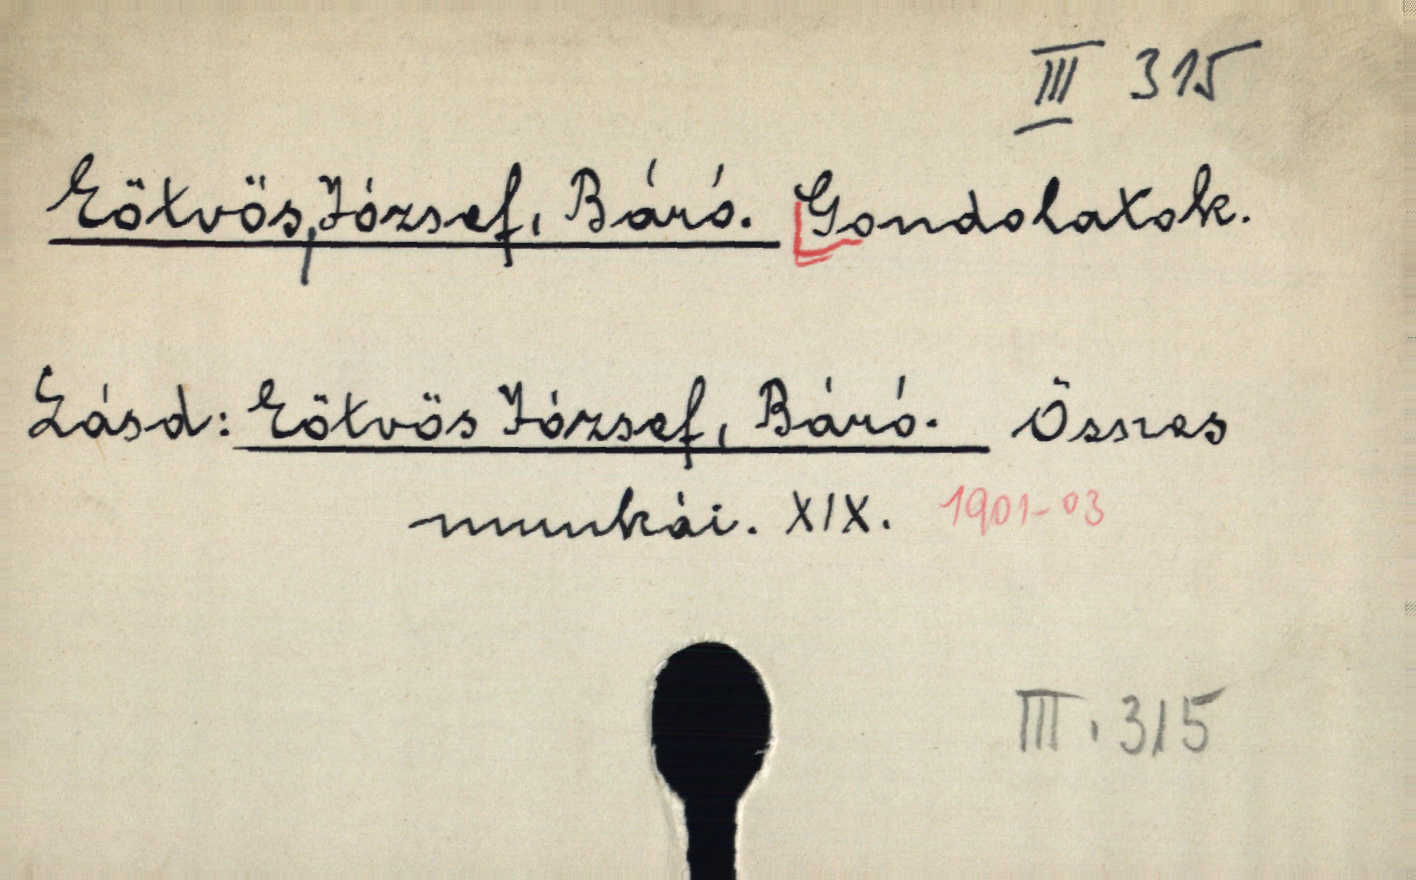 III 315
Eötvös, József, Báró. Gondolatok.
Lásd: Eötvös József, Báró. Összes
munkái. XIX. 1901-03
III. 315